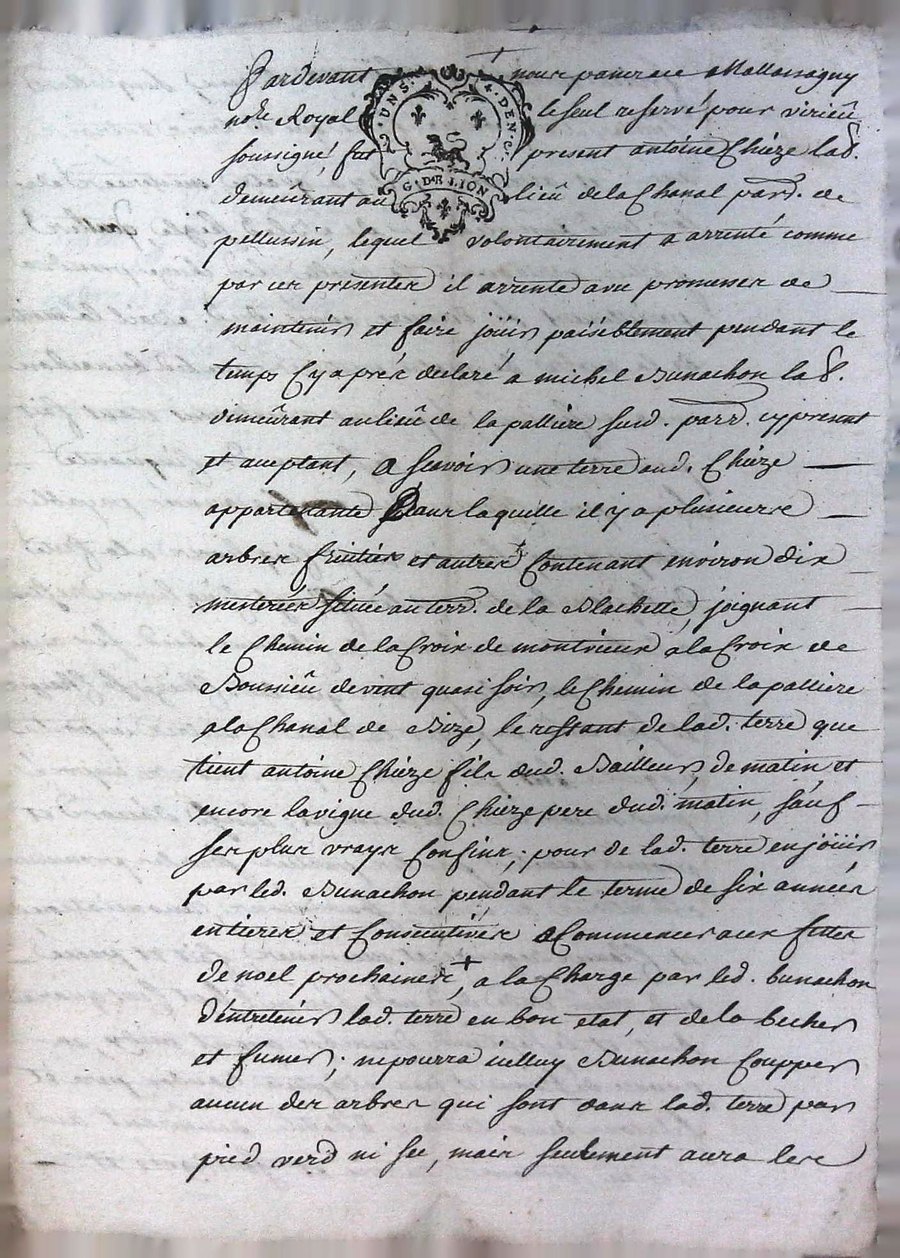 Pardevant nous pancrace Mallassagny
no.re Royal le seul reservé pour virieû
soussigné, fut present antoine Chièze lab.
demeûrant au lieû de la Chanal parr. de
pellussin, lequel volontairement a arrenté comme
par ces presentes il arrente avec promesses de
maintenir et faire joüir paisiblement pendant le
temps cy après declaré a michel Bunachon lab.
demeûrant au lieû de la pallière surd. parr. cy present
et aceptant, a scavoir une terre aud. Chièze
appartenante dans laquelle il y a plusieurs
arbres fruitiers et autres + Contenant environ dix
mesterées située au terr. de la Blachette, joignant
le Chemin de la Croix de montvieux a la Croix de
Boussieû devent quasi soir, le Chemin de la pallière
a la Chanal de Bize, le restant de lad. terre que
tient antoine Chièze fils dud. Bailleur, de matin, et
encore la vigne dud. Chièze pere dud. matin, sauf
ses plus vrays Confins; pour de lad. terre en joüir
par led. Bunachon pendant le terme de six années
entieres et Consecutives a Commencer aux fettes
de noel prochaines +, a la Charge par led. bunachon
d'entretenir lad. terre en bon etat, et de la becher
et fumer; ne pourra icelluy Bunachon Coupper
aucun des arbres qui sont dans lad. terre par
pied verd ni sec, mais seulement aura les
UNS. 4. DEN.
G. DE LION